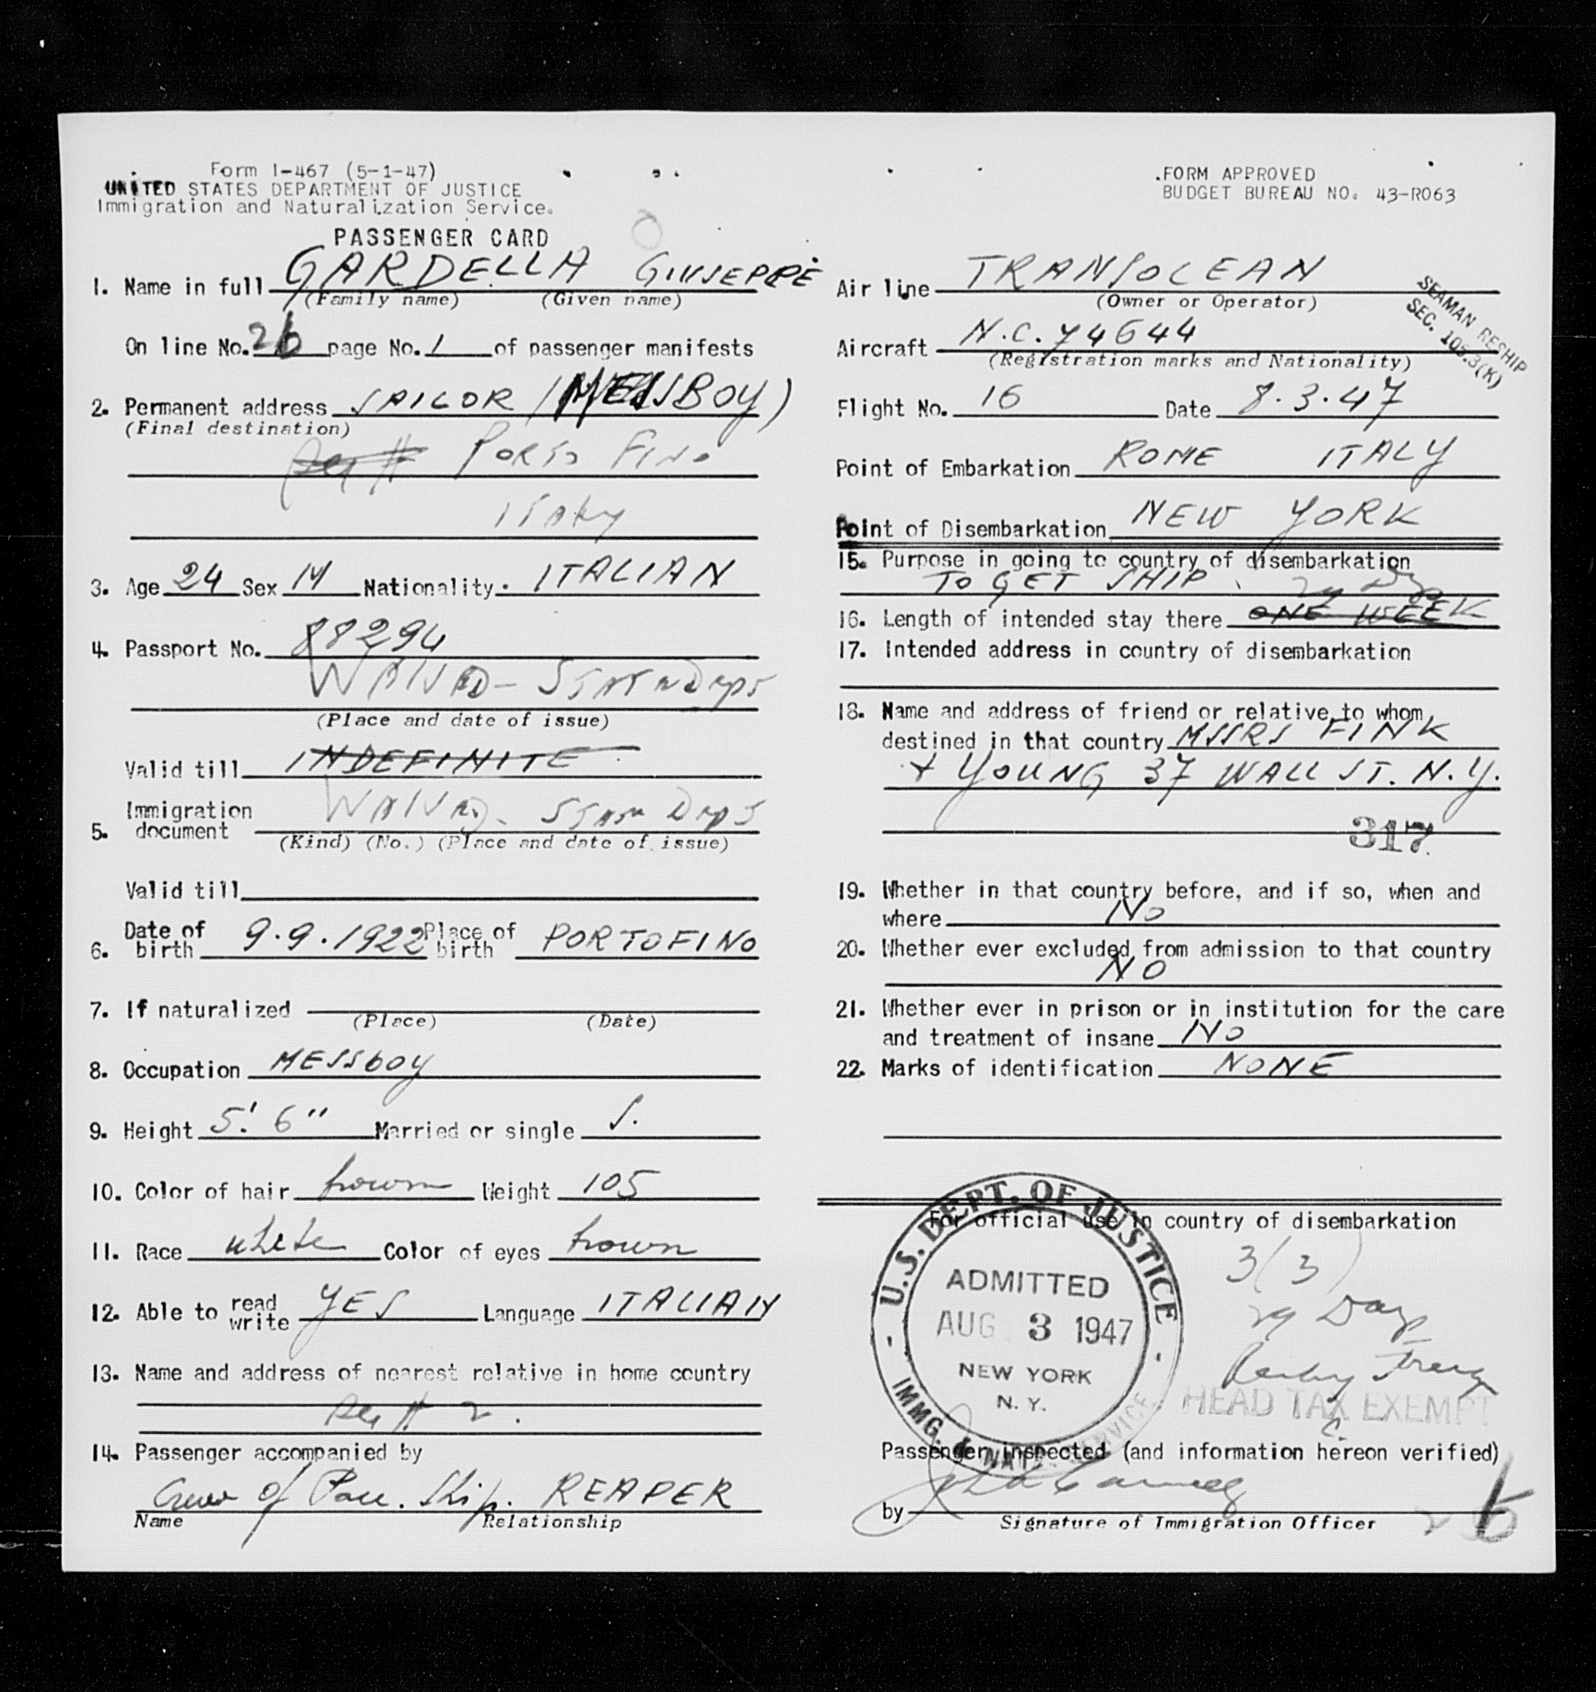 Form I-467 (5-1-47)
UNITED STATES DEPARTMENT OF JUSTICE
Immigration and Naturalization Service.
PASSENGER CARD
1. Name in full GARDELLA GIUSEPPE
(Family name) (Given name)
On line No. 26 page No. 1 of passenger manifests
2. Permanent address SAILOR (MESSBOY)
(Final destination)
PORTO FINO
ITALY
3. Age 24 Sex M Nationality. ITALIAN
4. Passport No. 88294
WAIVED - STATE DEPT
(Place and date of issue)
Valid till INDEFINITE
5. Immigration document WAIVED - STATE DEPT
(Kind) (No.) (Place and date of issue)
Valid till
6. Date of birth 9.9.1922 Place of birth PORTOFINO
7. If naturalized
(Place) (Date)
8. Occupation MESSBOY
9. Height 5' 6" Married or single S.
10. Color of hair brown Weight 105
11. Race white Color of eyes brown
12. Able to read write YES Language ITALIAN
13. Name and address of nearest relative in home country
# 2.
14. Passenger accompanied by
Crew of Pan. Ship. REAPER
Name Relationship
FORM APPROVED
BUDGET BUREAU NO. 43-R063
Air line TRANSOCEAN
(Owner or Operator)
SEAMAN RESHIP
SEC. 105.3(K)
Aircraft N.C. 74644
(Registration marks and Nationality)
Flight No. 16 Date 8.3.47
Point of Embarkation ROME ITALY
Point of Disembarkation NEW YORK
15. Purpose in going to country of disembarkation
TO GET SHIP
29 Days
16. Length of intended stay there ONE WEEK
17. Intended address in country of disembarkation
18. Name and address of friend or relative to whom
destined in that country MSSRS FINK
+ YOUNG 37 WALL ST. N.Y.
317
19. Whether in that country before, and if so, when and
where NO
20. Whether ever excluded from admission to that country
NO
21. Whether ever in prison or in institution for the care
and treatment of insane NO
22. Marks of identification NONE
For official use in country of disembarkation
U.S. DEPT. OF JUSTICE
ADMITTED
AUG 3 1947
NEW YORK
N. Y.
IMMG. & NATZ. SERVICE
3(3)
29 Days
HEAD TAX EXEMPT
Passenger inspected (and information hereon verified)
by
Signature of Immigration Officer
26